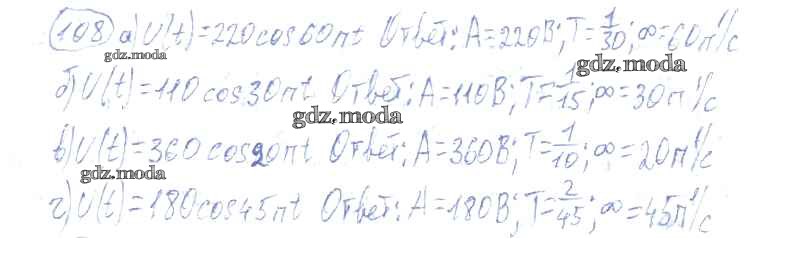 108 а) U(t)=220cos60πt Ответ: А=220В; T=1/30; ∞=60π 1/с
gdz.moda
gdz.moda
б) U(t)=110cos30πt Ответ: А=110В; T=1/15; ∞=30π 1/с
gdz.moda
в) U(t)=360cos20πt Ответ: А=360В; T=1/10; ∞=20π 1/с
gdz.moda
г) U(t)=180cos45πt Ответ: А=180В; T=2/45; ∞=45π 1/с